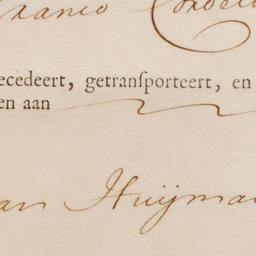 ranco Condell
ecedeert, getranſporteert, en
en aan
an Huijman